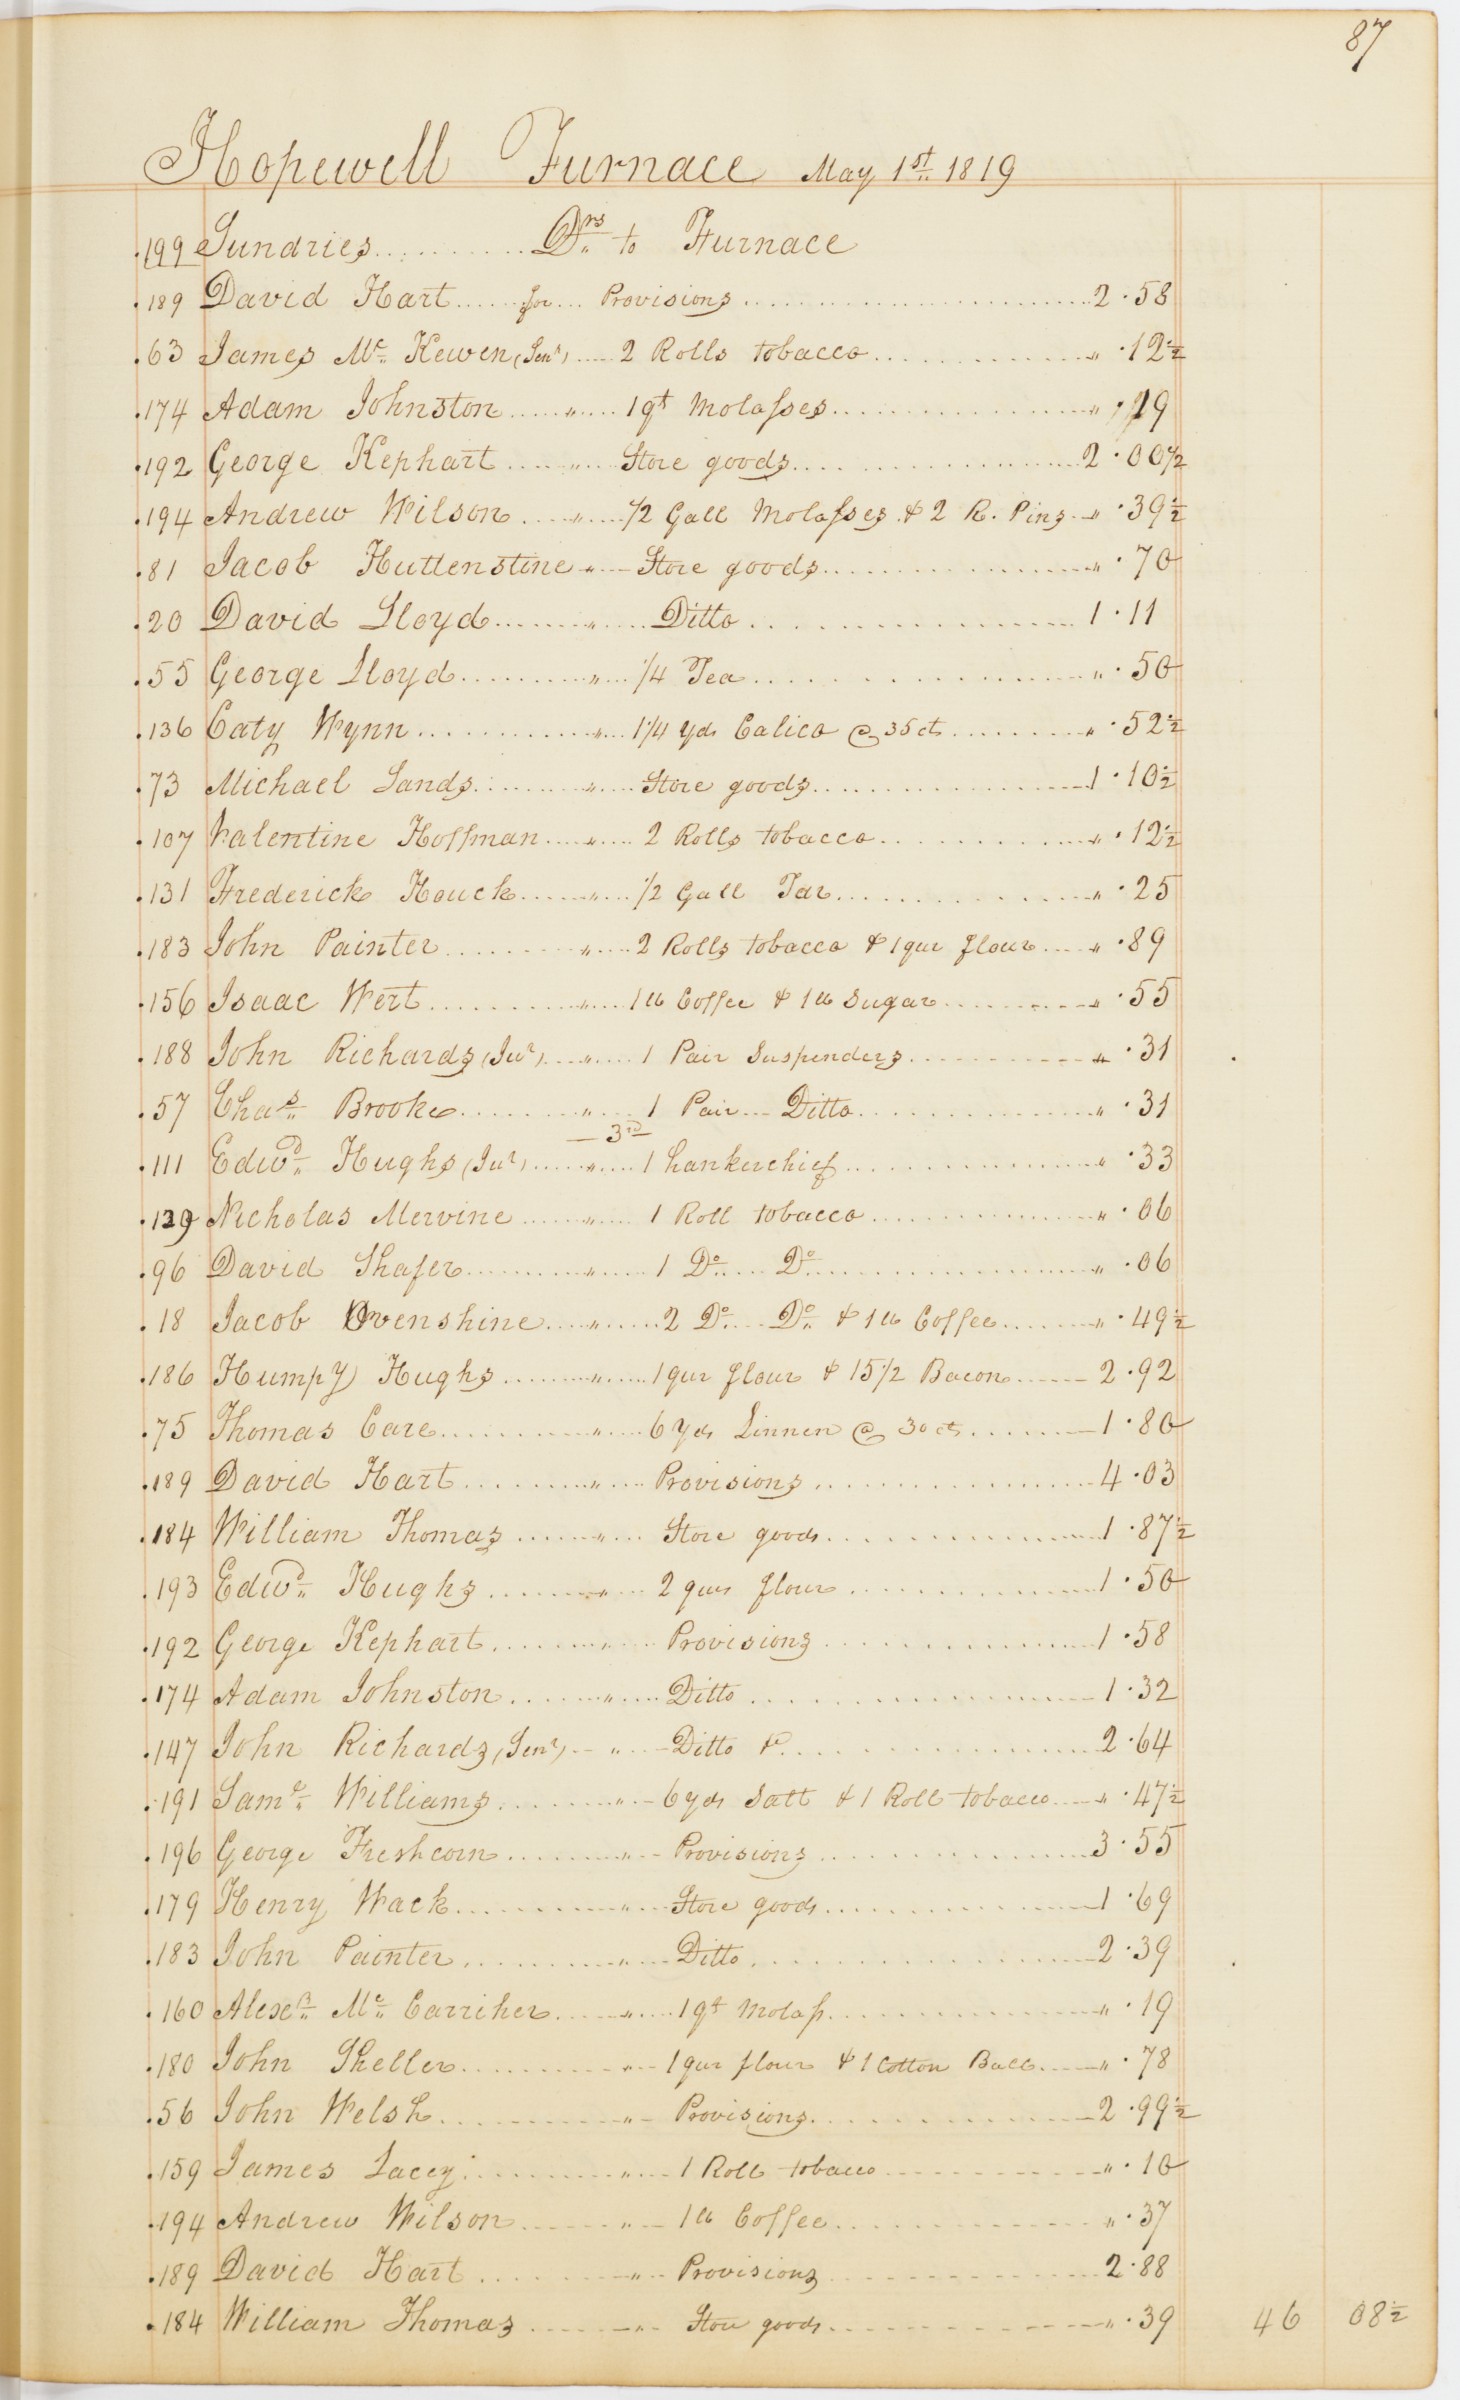 87
Hopewell Furnace May 1st 1819
199 Sundries .......... Drs to Furnace
189 David Hart ...... for ... Provisions .......... 2.58
63 James Mc Kewen (Senr) ..... 2 Rolls tobacco .......... " .12½
174 Adam Johnston ..... " .... 1 qt Molasses .......... " .19
192 George Kephart ..... " .... Store goods .......... 2.00½
194 Andrew Wilson ..... " .... ½ Gall Molasses & 2 R. Pins .. " .39½
81 Jacob Huttenstine " ... Store goods .......... " .70
20 David Lloyd ..... " .... Ditto .......... 1.11
55 George Lloyd ..... " ... ¼ Tea .......... " .50
136 Caty Wynn .......... " ... 1¼ yds Calico @ 35 cts .......... " .52½
73 Michael Sands .......... " .... Store goods .......... 1.10½
107 Valentine Hoffman .... " .... 2 Rolls tobacco .......... " .12½
131 Frederick Houck ..... " .... ½ Gall Tar .......... " .25
183 John Painter .......... " .... 2 Rolls tobacco & 1 qur flour .... " .89
156 Isaac Wert .......... " .... 1 lb Coffee & 1 lb Sugar .......... " .55
188 John Richards (Junr) .... " .... 1 Pair Suspenders .......... " .31
57 Chas Brooke .......... " .... 1 Pair ... Ditto .......... " .31
3rd
111 Edwd Hughs (Junr) ..... " .... 1 hankerchief .......... " .33
129 Nicholas Mervine ..... " .... 1 Roll tobacco .......... " .06
96 David Shafer .......... " .... 1 Do .... Do .......... " .06
18 Jacob Ovenshine .... " .... 2 Do .... Do & 1 lb Coffee ....... " .49½
186 Humpy Hughs ..... " .... 1 qur flour & 15½ Bacon ...... 2.92
75 Thomas Care .......... " .... 6 Yds Linnen @ 30 cts ....... 1.80
189 David Hart .......... " .... Provisions .......... 4.03
184 William Thomas ..... " .... Store goods .......... 1.87½
193 Edwd Hughs .......... " .... 2 qurs flour .......... 1.50
192 George Kephart .......... " .... Provisions .......... 1.58
174 Adam Johnston .......... " .... Ditto .......... 1.32
147 John Richards (Senr) .. " .... Ditto & .......... 2.64
191 Saml Williams .......... " .. 6 yds Satt & 1 Roll tobacco .... " .47½
196 George Freshcorn .......... " .. Provisions .......... 3.55
179 Henry Wack .......... " .... Store goods .......... 1.69
183 John Painter .......... " .... Ditto .......... 2.39
160 Alexr Mc Carriher .... " .... 1 qt Molass .......... " .19
180 John Sheller .......... " .. 1 qur flour & 1 Cotton Ball .... " .78
56 John Welsh .......... " .. Provisions .......... 2.99½
159 James Lacey .......... " .... 1 Roll tobacco .......... " .10
194 Andrew Wilson .......... " .. 1 lb Coffee .......... " .37
189 David Hart .......... " .. Provisions .......... 2.88
184 William Thomas .......... " .. Store goods .......... " .39 46 08½